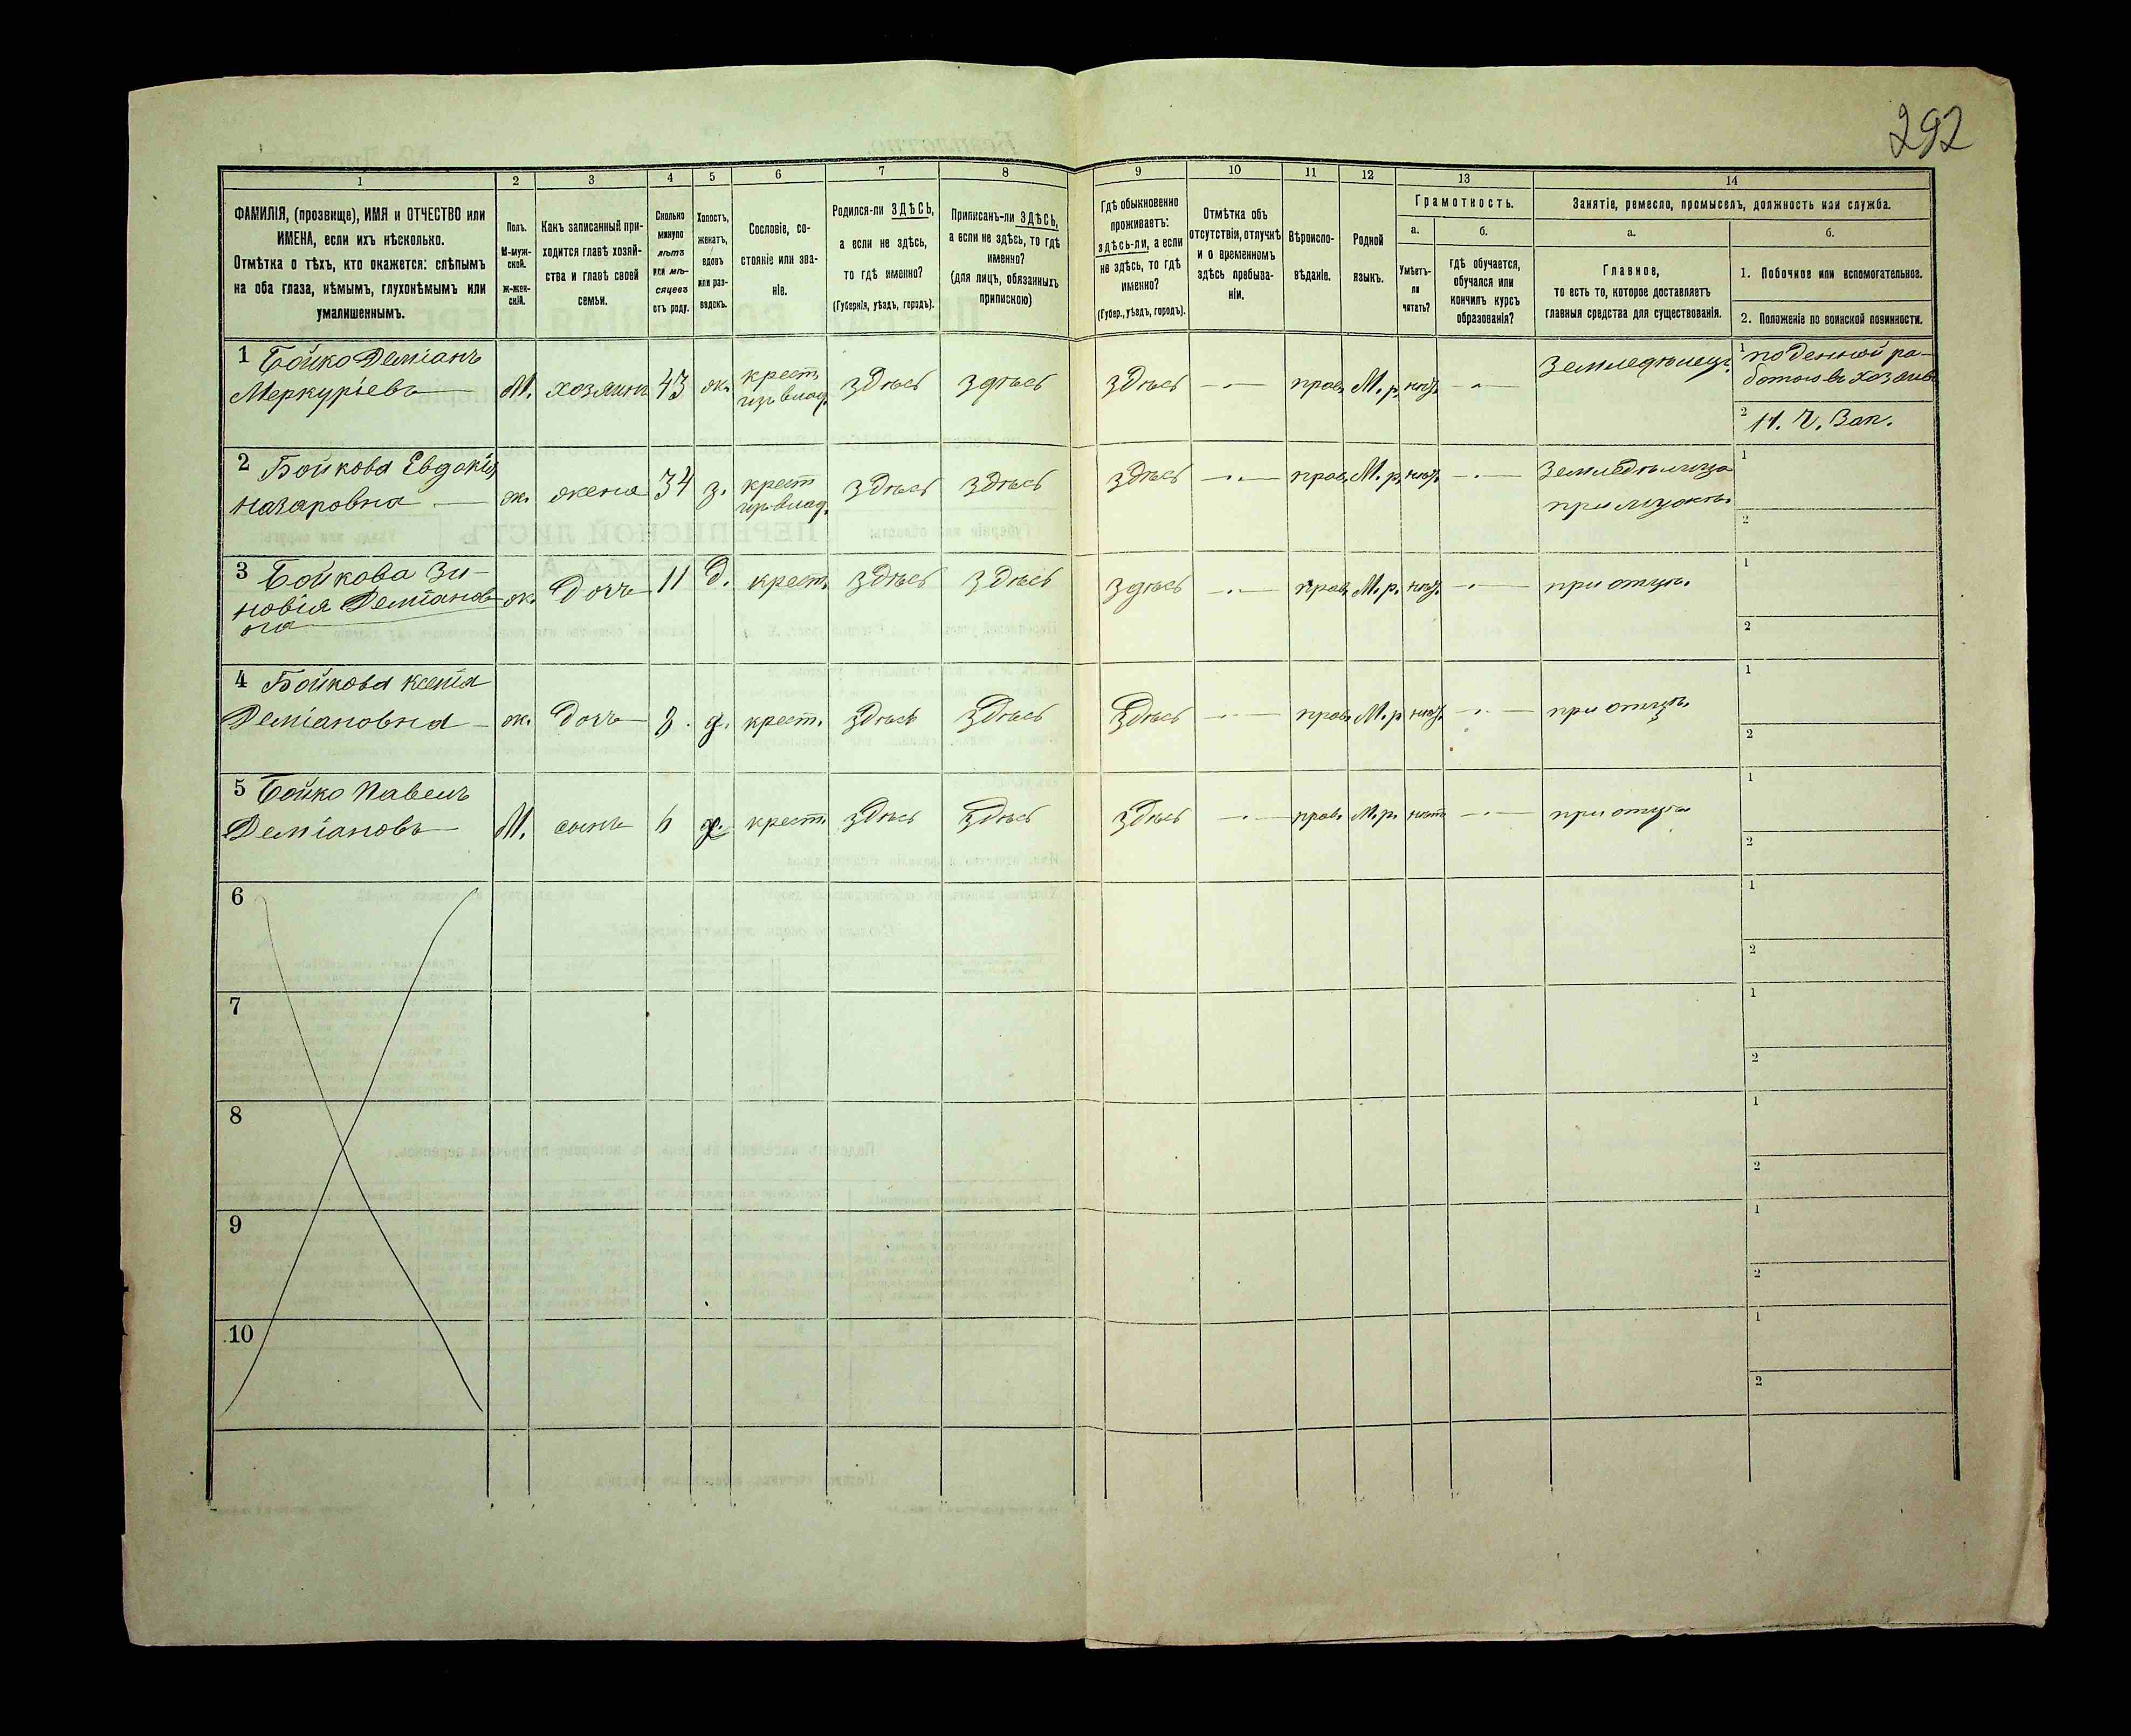 292
1
2
3
4
5
6
7
8
9
10
11
12
13
14
ФАМИЛІЯ, (прозвище), ИМЯ и ОТЧЕСТВО или
ИМЕНА, если ихъ нѣсколько.
Отмѣтка о тѣхъ, кто окажется: слѣпымъ
на оба глаза, нѣмымъ, глухонѣмымъ или
умалишеннымъ.
Полъ.
М-муж-
ской.
ж-жен-
скій.
Какъ записанный при-
ходится главѣ хозяй-
ства и главѣ своей
семьи.
Сколько
минуло
лѣтъ
или мѣ-
сяцевъ
отъ роду.
Холостъ,
женатъ,
вдовъ
или раз-
веденъ.
Сословіе, со-
стояніе или зва-
ніе.
Родился-ли ЗДѢСЬ,
а если не здѣсь,
то гдѣ именно?
(Губернія, уѣздъ, городъ).
Приписанъ-ли ЗДѢСЬ,
а если не здѣсь, то гдѣ
именно?
(для лицъ, обязанныхъ
припискою)
Гдѣ обыкновенно
проживаетъ:
здѣсь-ли, а если
не здѣсь, то гдѣ
именно?
(Губер., уѣздъ, городъ).
Отмѣтка объ
отсутствіи, отлучкѣ
и о временномъ
здѣсь пребыва-
ніи.
Вѣроиспо-
вѣданіе.
Родной
языкъ.
Грамотность.
а.
Умѣетъ-
ли
читать?
б.
гдѣ обучается,
обучался или
кончилъ курсъ
образованія?
Занятіе, ремесло, промыселъ, должность или служба.
а.
Главное,
то есть то, которое доставляетъ
главныя средства для существованія.
б.
1. Побочное или вспомогательное.
2. Положеніе по воинской повинности.
1 Бойко Деміанъ
Меркуріевъ
М. хозяинъ 43 ж. крест. изъ влад. здѣсь здѣсь здѣсь прав. М. р. нѣт. Земледѣлецъ
1 поденной ра-
ботою въ хозяив
2 Н. Ч. Зап.
2 Бойкова Евдокія
Назаровна
ж. жена 34 з. крест. изъ влад. здѣсь здѣсь здѣсь прав. М. р. нѣт. Земледѣлица
при мужѣ.
1
2
3 Бойкова Зи-
новія Деміанов
на
ж. дочь 11 д. крест. здѣсь здѣсь здѣсь прав. М. р. нѣт. при отцѣ.
1
2
4 Бойкова Ксенія
Деміановна
ж. дочь 8. д. крест. здѣсь здѣсь здѣсь прав. М. р. нѣт. при отцѣ.
1
2
5 Бойко Павелъ
Деміановъ
М. сынъ 6 х. крест. здѣсь здѣсь здѣсь прав. М. р. нѣт при отцѣ
1
2
6
1
2
7
1
2
8
1
2
9
1
2
10
1
2